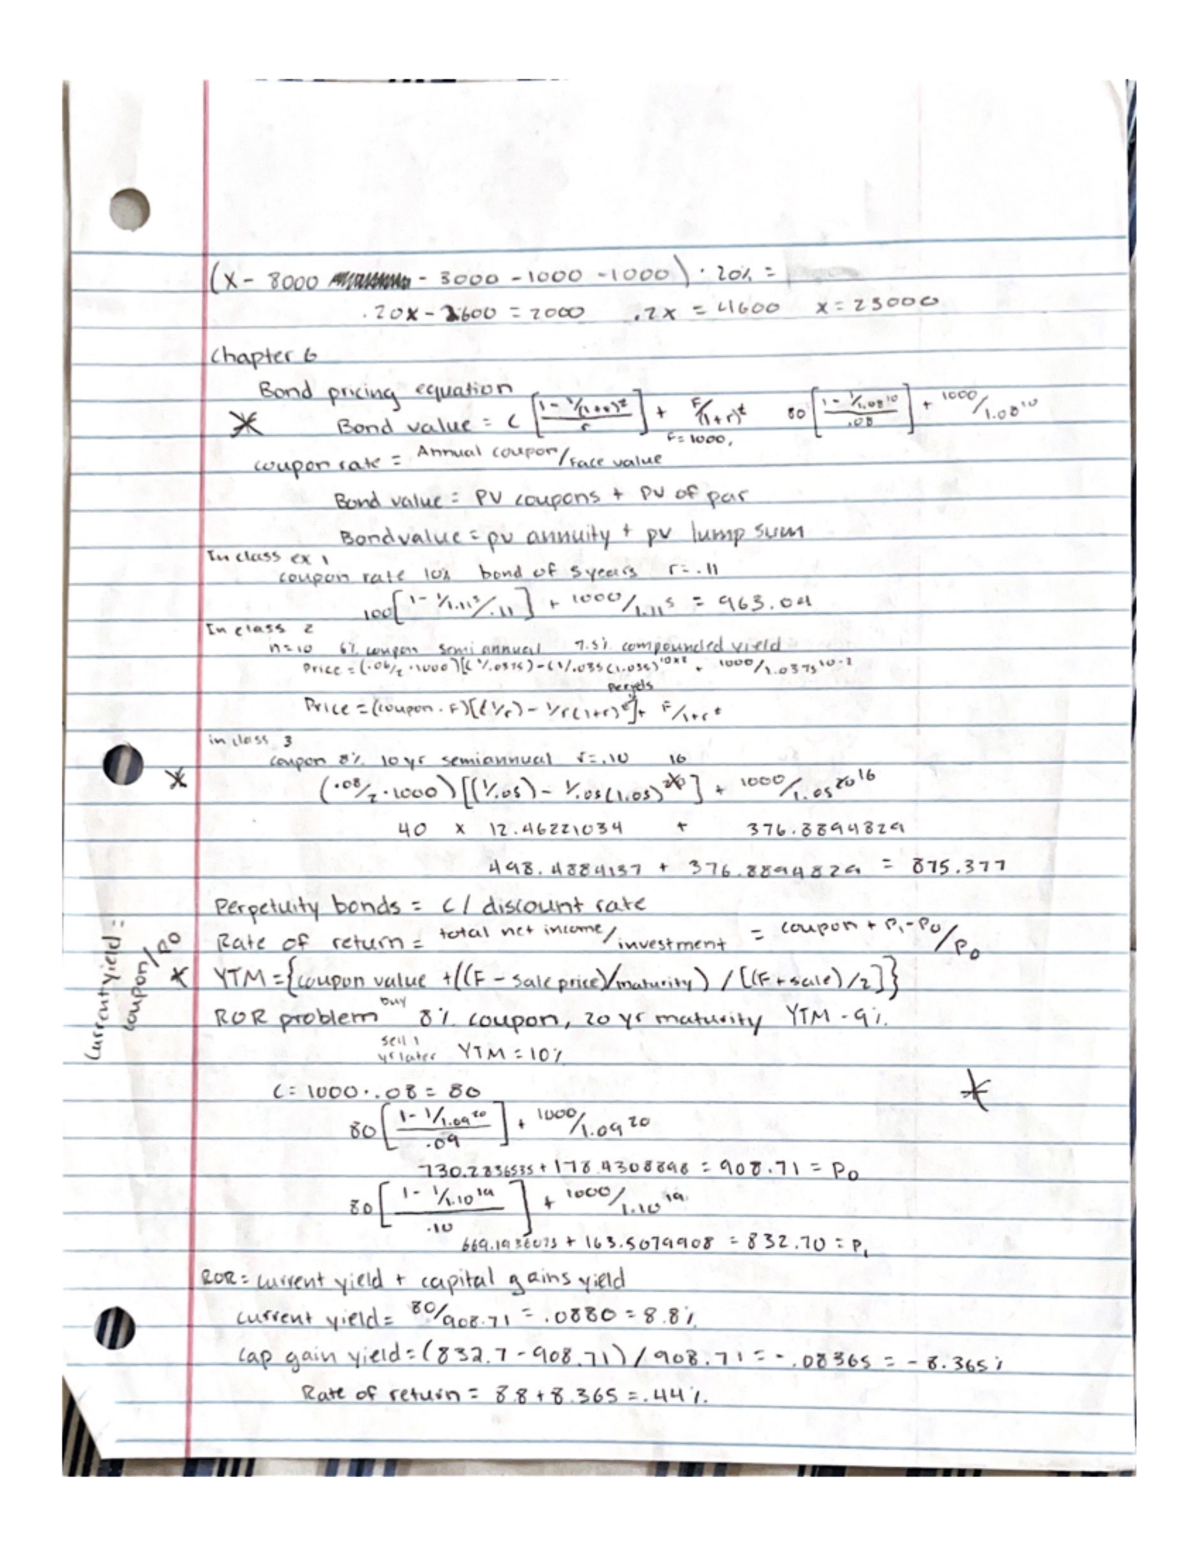 (x - 8000 - 3000 - 1000 - 1000) · 20% =
.20x - 2600 = 2000 .2x = 4600 x = 23000
Chapter 6
Bond pricing equation
Bond value = C [1 - 1/(1+r)^t / r] + F/(1+r)^t 80 [1 - 1/1.08^10 / .08] + 1000/1.08^10
F = 1000,
coupon rate = Annual coupon/Face value
Bond value = PV coupons + PV of par
Bond value = pv annuity + pv lump sum
In class ex 1
coupon rate 10% bond of 5 years r = .11
100 [1 - 1/1.11^5 / .11] + 1000/1.11^5 = 963.04
In class 2
n=10 6% coupon semi annual 7.5% compounded yield
Price = (.06/2 · 1000)[(1/.0375) - (1/.035(1.035)^10x2 + 1000/1.0375^10·2
periods
Price = (coupon · F)[(1/r) - 1/r(1+r)^t] + F/1+r^t
in class 3
coupon 8% 10 yr semiannual r = .10 16
(.08/2 · 1000)[(1/.05) - 1/.05(1.05)^20] + 1000/1.05^20 16
40 x 12.46221034 + 376.8894829
498.4884137 + 376.8894829 = 875.377
Perpetuity bonds = C / discount rate
Rate of return = total net income/investment = coupon + P1 - P0/P0
Current yield = coupon/P0
YTM = {coupon value + ((F - sale price)/maturity) / [(F + sale)/2]}
ROR problem buy 8% coupon, 20 yr maturity YTM - 9%
sell 1 yr later YTM = 10%
C = 1000 · .08 = 80
80 [1 - 1/1.09^20 / .09] + 1000/1.09^20
730.2836535 + 178.4308898 = 908.71 = P0
80 [1 - 1/1.10^19 / .10] + 1000/1.10^19
669.1936073 + 163.5079908 = 832.70 = P1
ROR = current yield + capital gains yield
current yield = 80/908.71 = .0880 = 8.8%
cap gain yield = (832.7 - 908.71) / 908.71 = -.08365 = -8.365%
Rate of return = 8.8 + 8.365 = .44%.